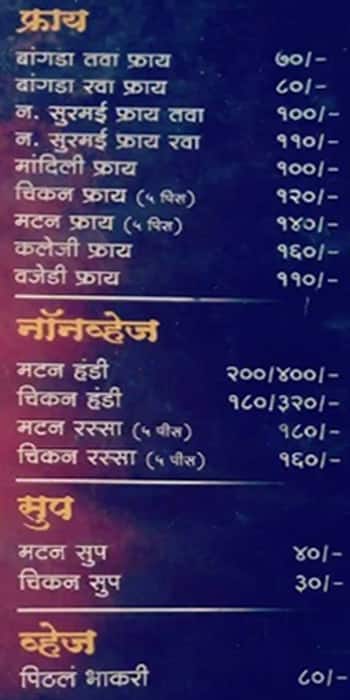 फ्राय
बांगडा तवा फ्राय ७०/-
बांगडा रवा फ्राय ८०/-
न. सुरमई फ्राय तवा १००/-
न. सुरमई फ्राय रवा ११०/-
मांदिली फ्राय १००/-
चिकन फ्राय (५ पिस) १२०/-
मटन फ्राय (५ पिस) १४०/-
कलेजी फ्राय १६०/-
वजेडी फ्राय ११०/-
नॉनव्हेज
मटन हंडी २००/४००/-
चिकन हंडी १८०/३२०/-
मटन रस्सा (५ पीस) १८०/-
चिकन रस्सा (५ पीस) १६०/-
सुप
मटन सुप ४०/-
चिकन सुप ३०/-
व्हेज
पिठलं भाकरी ८०/-